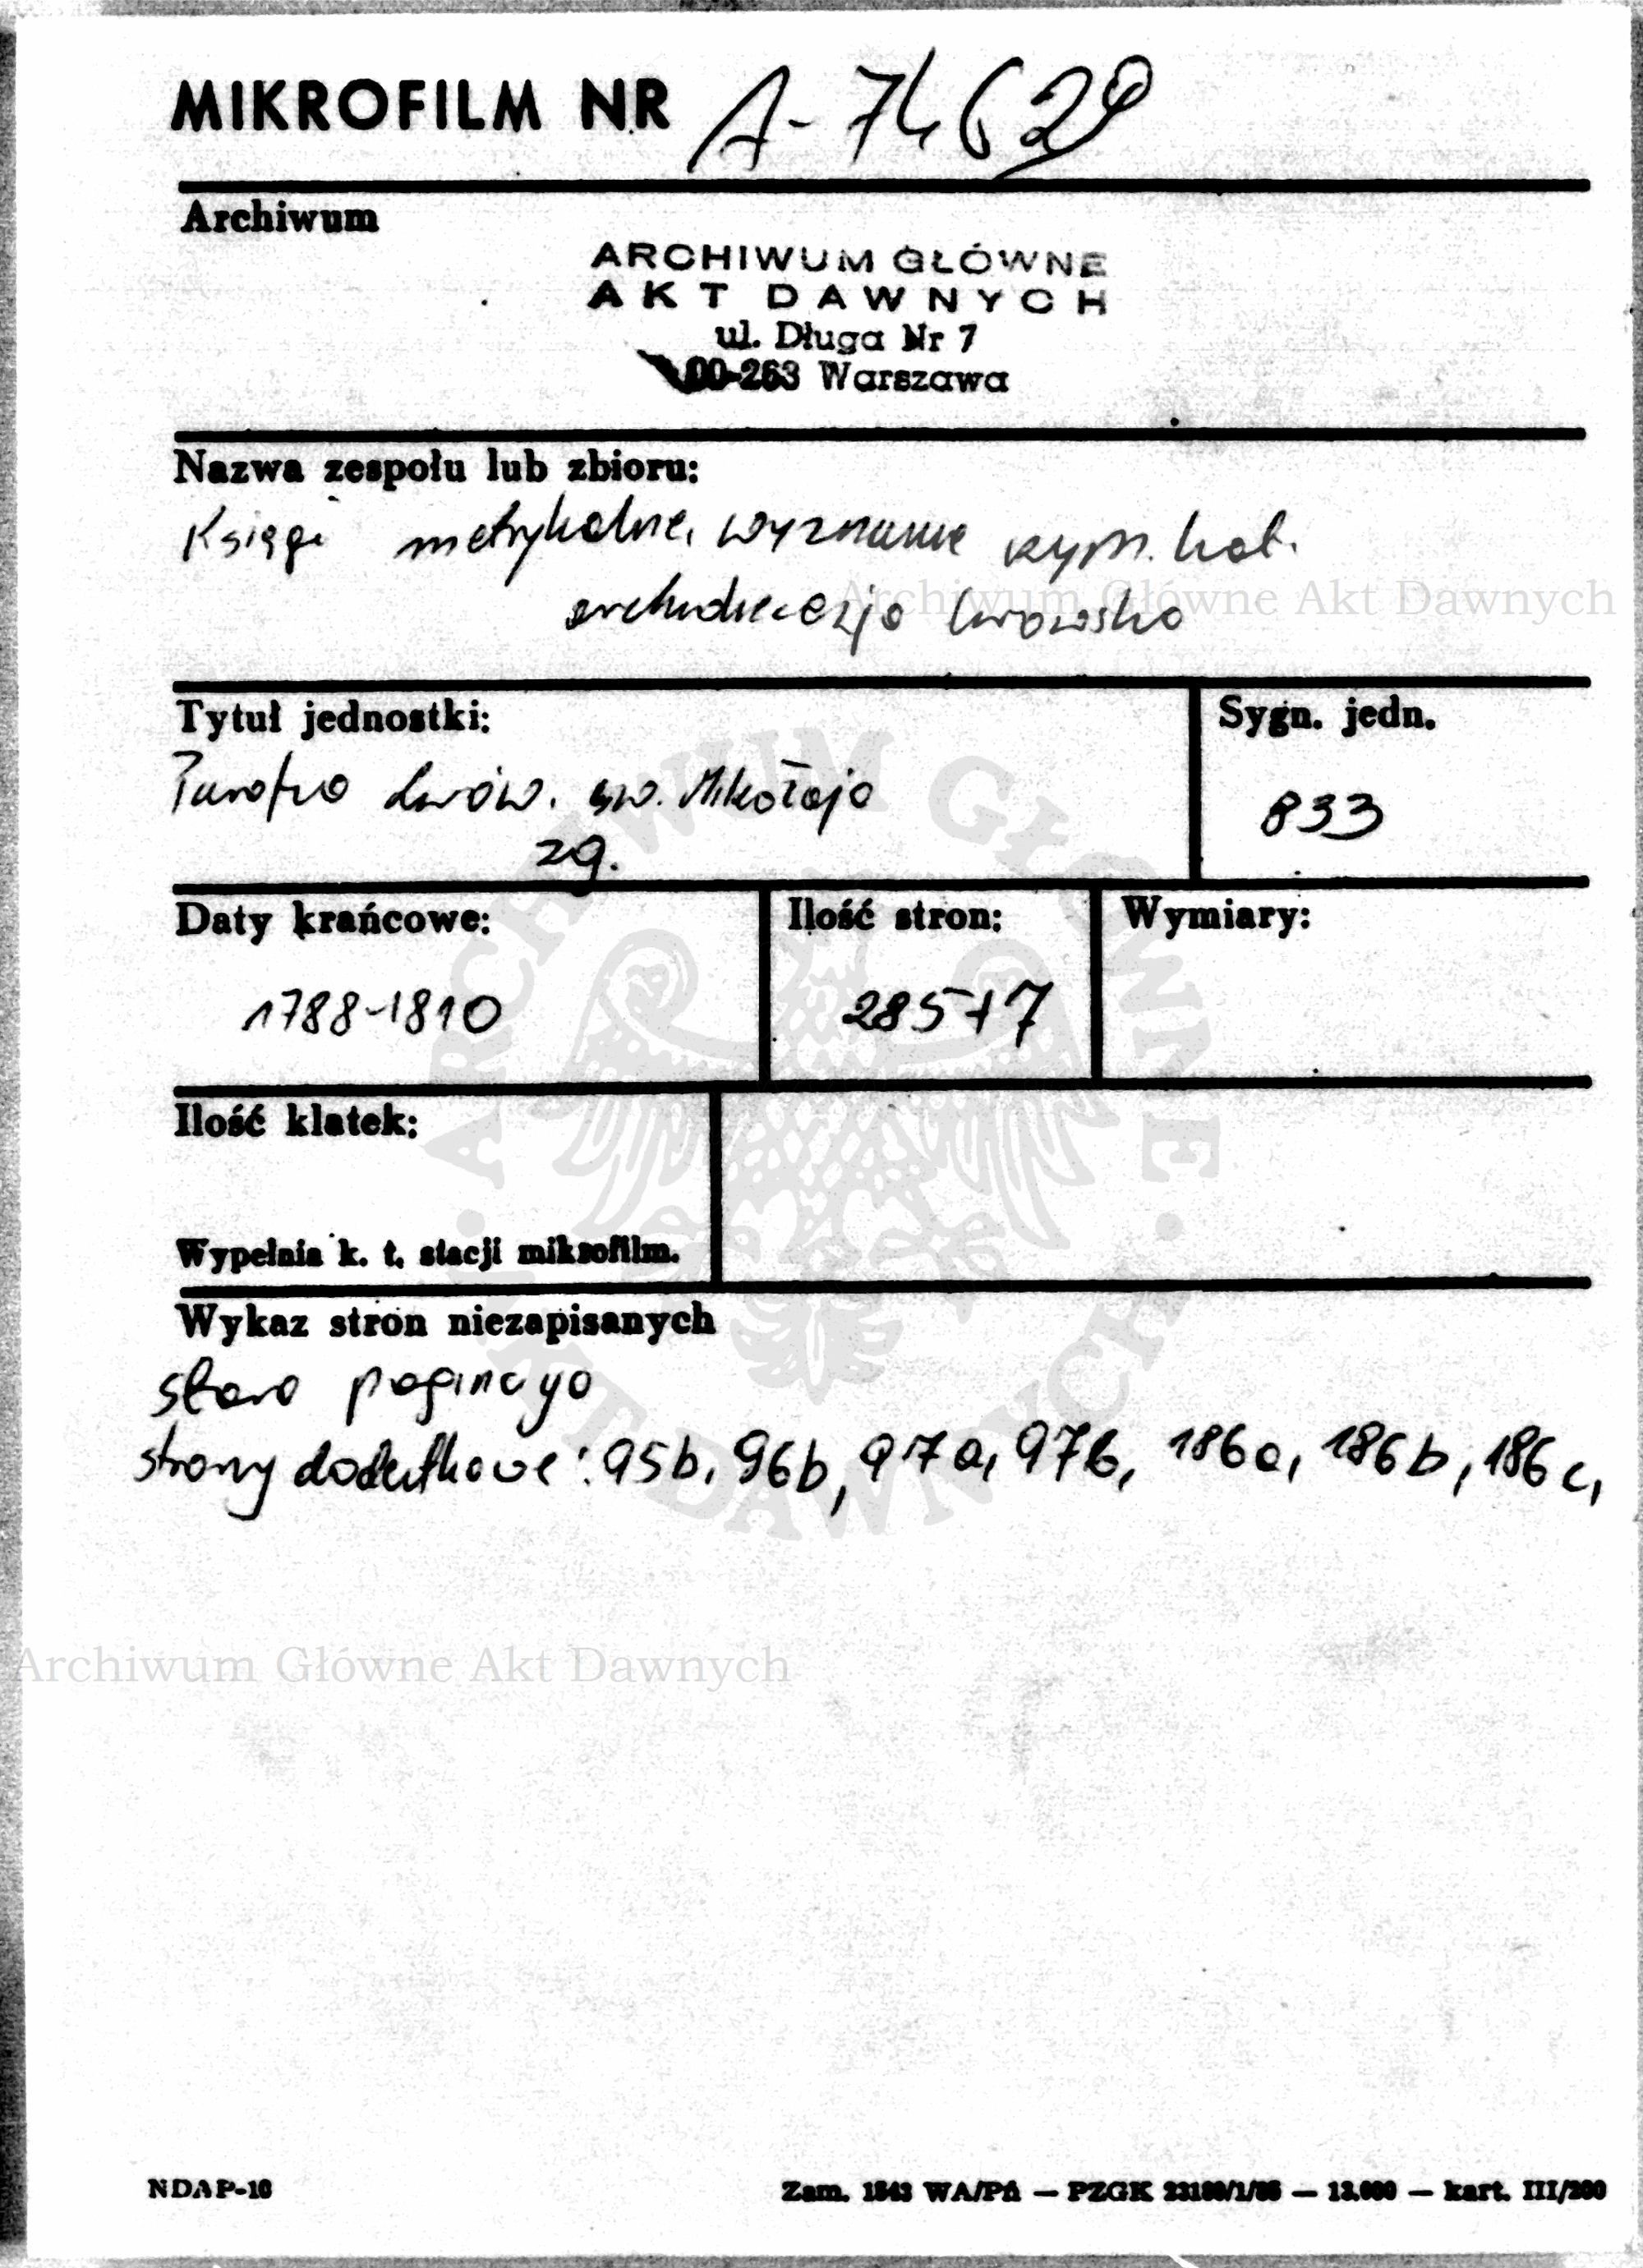 MIKROFILM NR A-74629
Archiwum
ARCHIWUM GŁÓWNE
AKT DAWNYCH
ul. Długa Nr 7
00-263 Warszawa
Nazwa zespołu lub zbioru:
Księgi metrykalne, wyznanie rzym. kat.
Archiwum Główne Akt Dawnych
archidiecezja lwowska
Tytuł jednostki:
Sygn. jedn.
Parafia Lwów. św. Mikołaja
833
zg.
Daty krańcowe:
Ilość stron:
Wymiary:
1788-1810
285+7
Ilość klatek:
Wypełnia k. t. stacji mikrofilm.
Wykaz stron niezapisanych
stara paginacja
strony dodatkowe: 95b, 96b, 97a, 97b, 186a, 186b, 186c,
ARCHIWUM GŁÓWNE · AKT DAWNYCH ·
Archiwum Główne Akt Dawnych
NDAP-16
Zam. 1543 WA/Pń — PZGK — 13.000 — kart. III/200